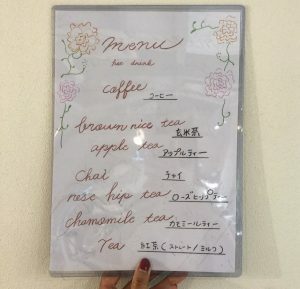 menu
hot drink
coffee コーヒー
brown rice tea 玄米茶
apple tea アップルティー
Chai チャイ
rose hip tea ローズヒップティー
chamomile tea カモミールティー
Tea 紅茶(ストレート/ミルク)